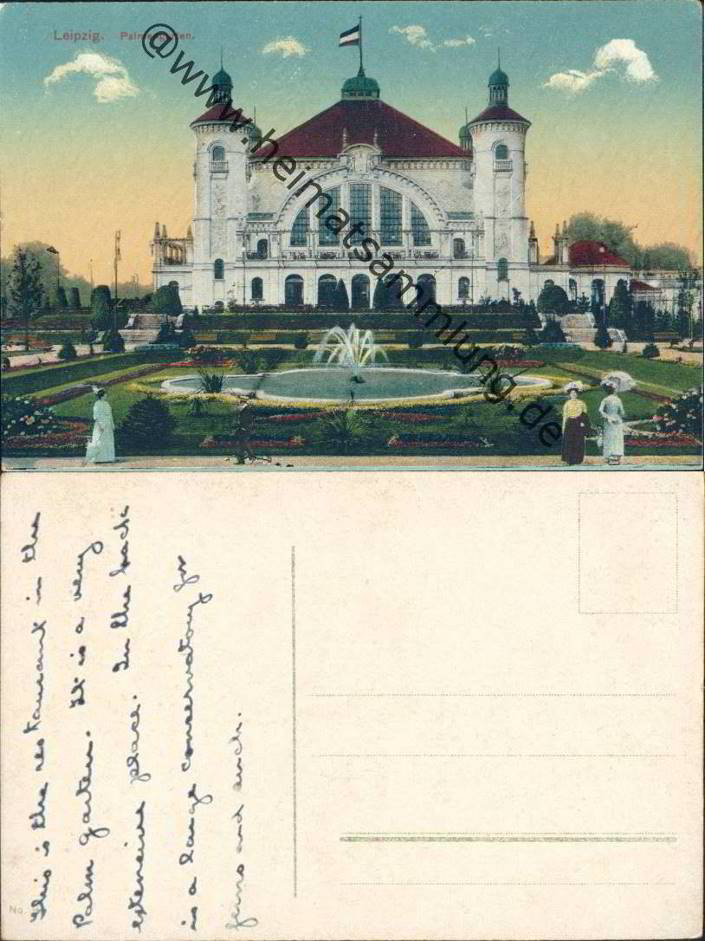 Leipzig. Palmengarten.
@www.heimatsammlung.de
This is the restaurant in the
Palm garten. It is a very
extensive place. In the back
is a large conservatory for
ferns and such.
No.